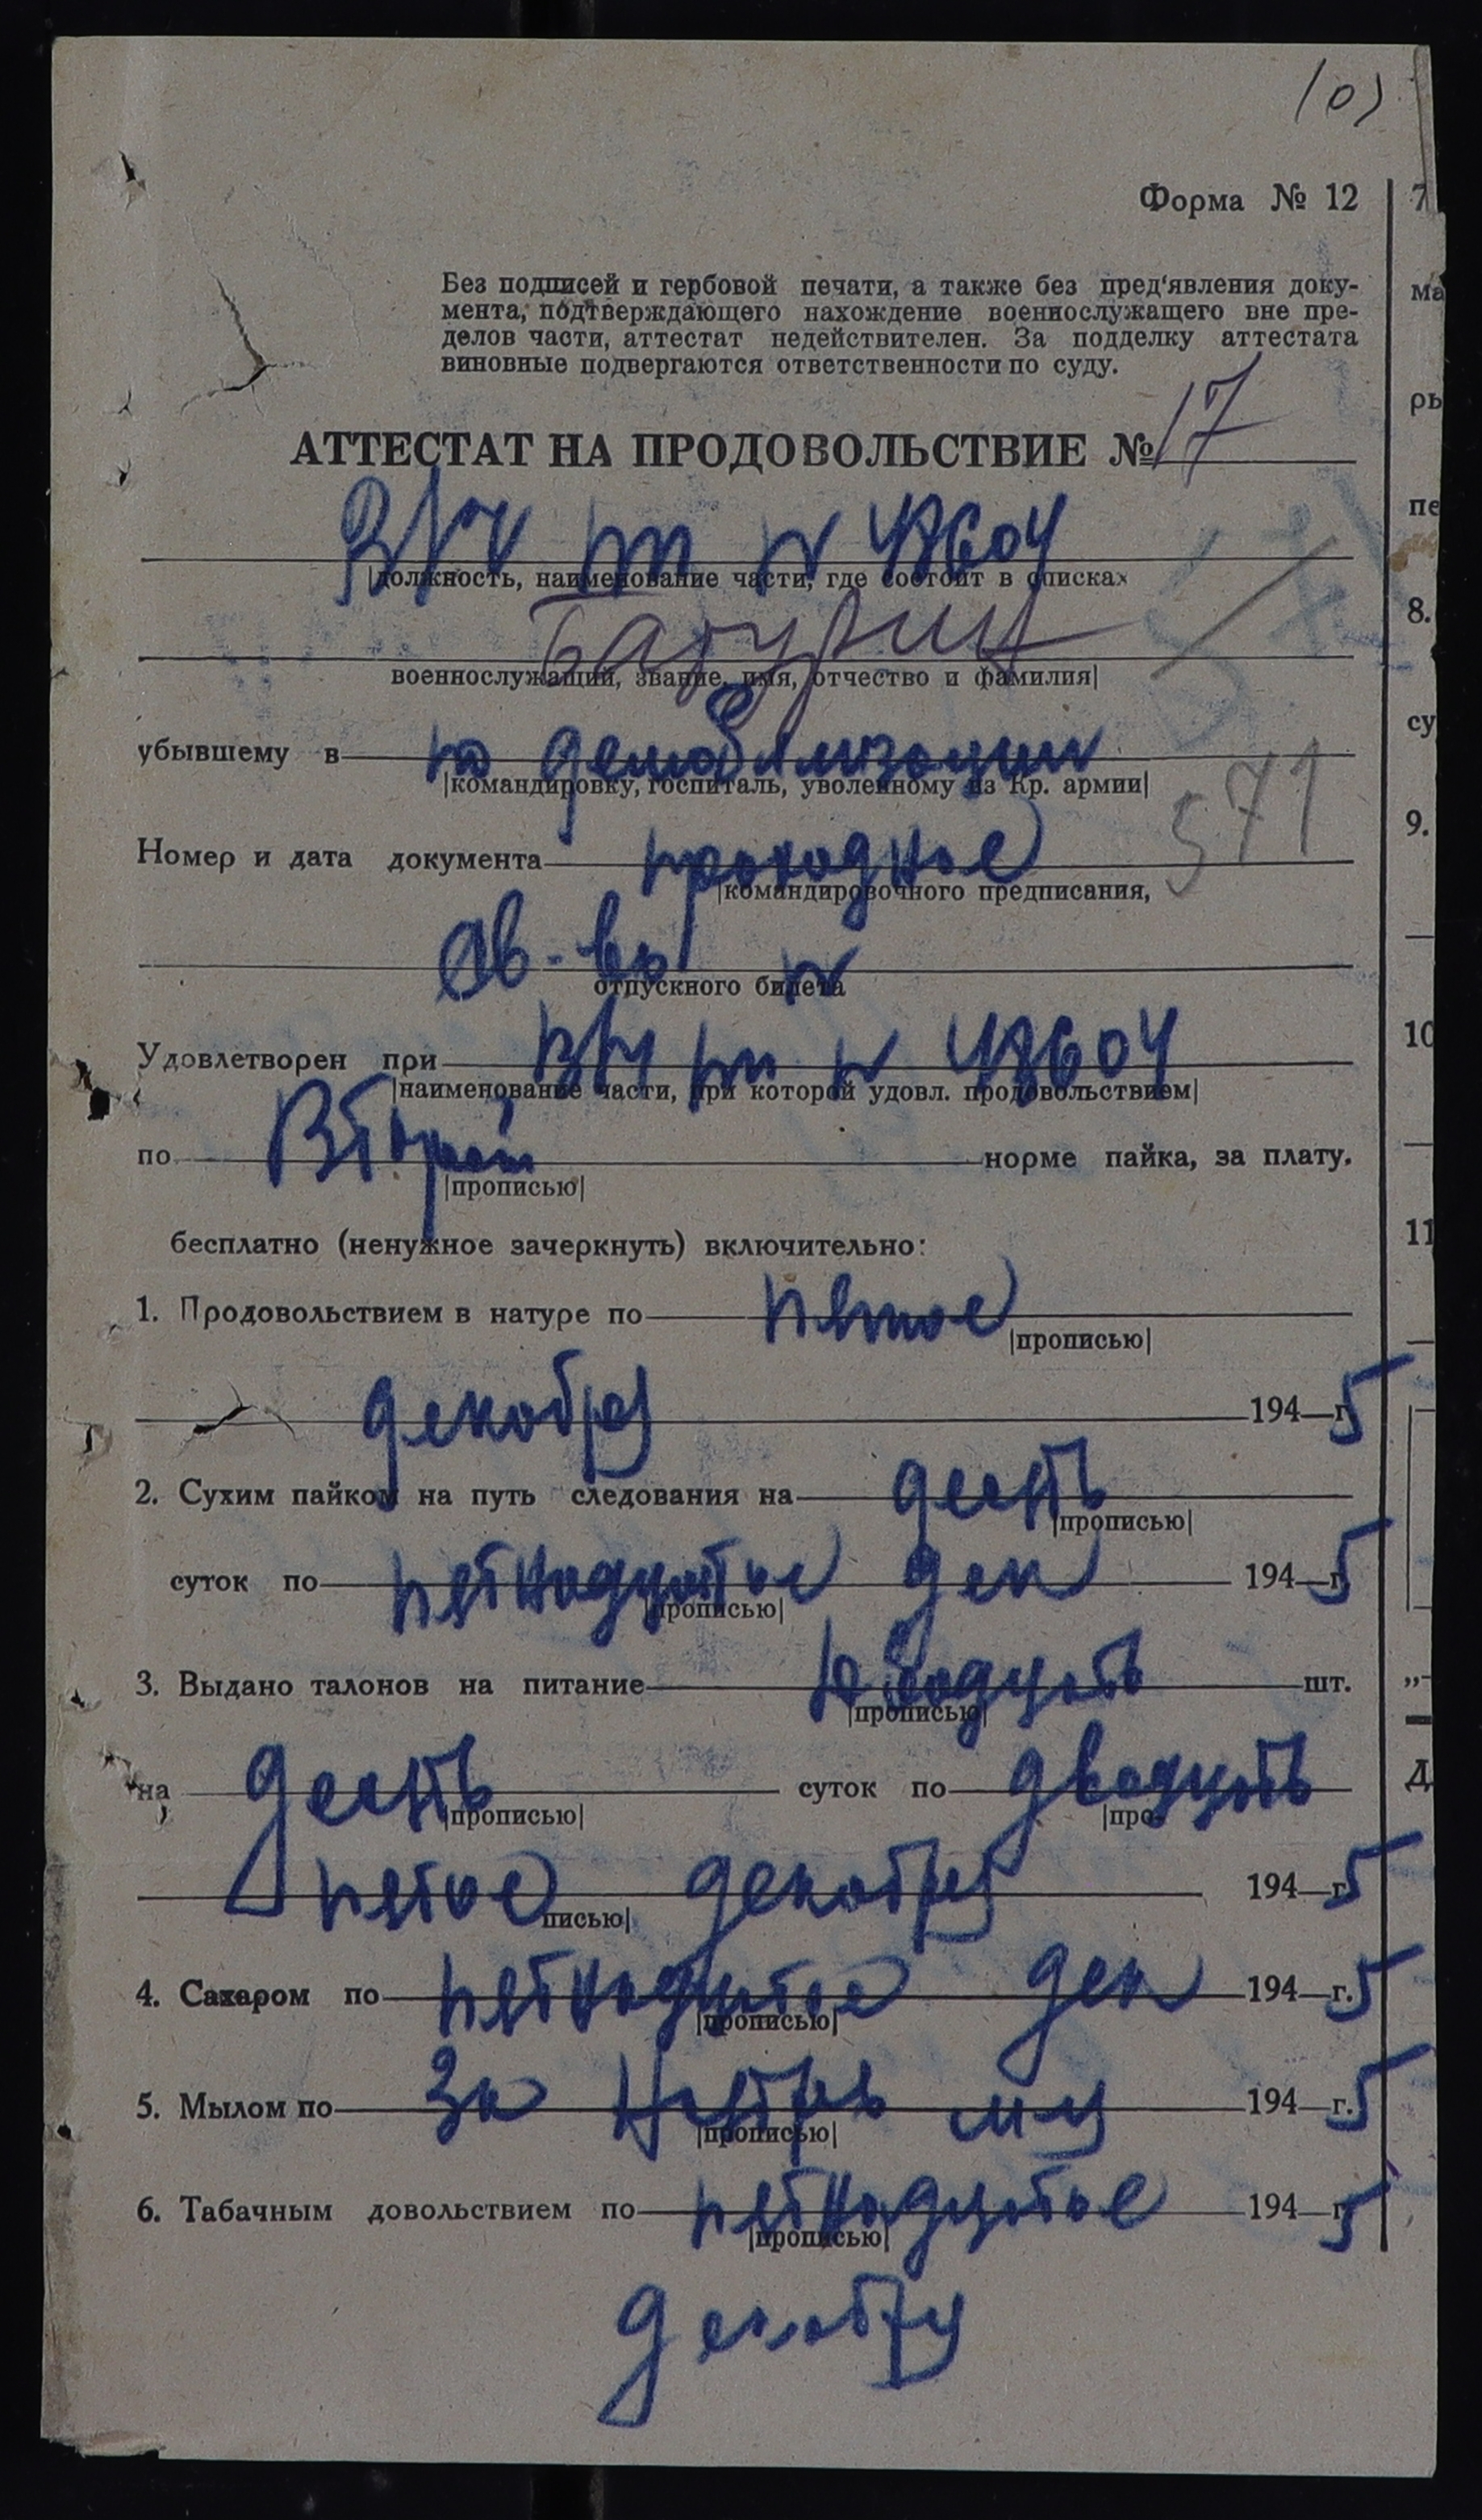 (0)
Форма № 12
Без подписей и гербовой печати, а также без пред'явления доку-
мента, подтверждающего нахождение военнослужащего вне пре-
делов части, аттестат недействителен. За подделку аттестата
виновные подвергаются ответственности по суду.
АТТЕСТАТ НА ПРОДОВОЛЬСТВИЕ № 17
В/ч пп № 48604
|должность, наименование части, где состоит в списках
военнослужащий, звание, имя, отчество и фамилия|
убывшему в по демобилизации
|командировку, госпиталь, уволенному из Кр. армии|
571
Номер и дата документа проходное
|командировочного предписания,
св-во №
отпускного билета
Удовлетворен при В/ч пп № 48604
|наименование части, при которой удовл. продовольствием|
по Второй норме пайка, за плату.
|прописью|
бесплатно (ненужное зачеркнуть) включительно:
1. Продовольствием в натуре по пятое
|прописью|
декабря 194—г. 5
2. Сухим пайком на путь следования на десять
|прописью|
суток по пятнадцатое дек 194—г. 5
|прописью|
3. Выдано талонов на питание шт.
|прописью|
на десять суток по двадцать
|прописью| |про-
пятое декабря 194—г. 5
писью|
4. Сахаром по пятнадцатое дек 194—г. 5
|прописью|
5. Мылом по за ноябрь м-ц 194—г. 5
|прописью|
6. Табачным довольствием по пятнадцатое 194—г. 5
|прописью|
декабря
7
ма
рь
пе
8.
су
9.
10
11
„-
Д